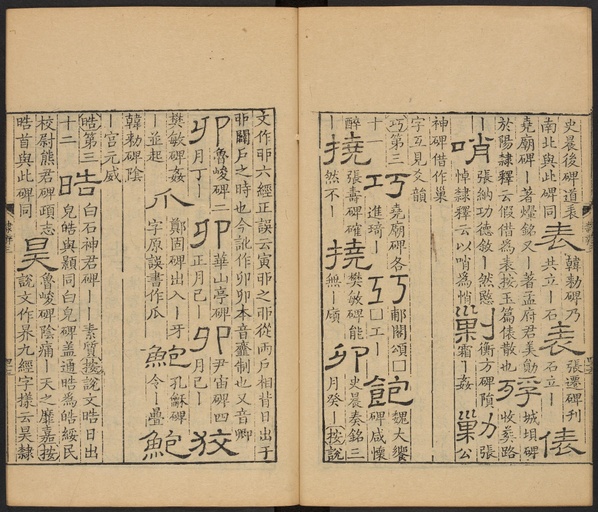 史晨後碑道表
南北與此碑同表韓勑碑乃表張遷碑刊俵
堯廟碑一著 銘又一著孟府君美勛 城垻碑
於陽隸釋云假借為表按玉篇俵散也 收葬路
哨張納功德敘一然 衡方碑隕力張
悼隸釋云以哨為悄巢霜一姦巢公
神碑借作巢
字互見爻韻
巧第三巧堯廟碑各丂郙閣頌囗飽魏大饗
十一 進琦一 囗工 碑咸懷
醉撓張壽碑確撓樊敏碑能卯史晨奏銘三
一 然不一 無一 月癸一按說
文作丣六經正誤云寅丣之丣從兩戶相背日出于
丣闢戶之時也今訛作卯卯本音 制也又音卿
卯魯峻碑二卯華山亭碑卯尹宙碑四狡
月丁一 正月己一 月己一
樊敏碑姦爪鄭固碑出入一牙鮑孔龢碑鮑
一並起 字原誤書作瓜 令一疊
韓勑碑陰
一宮元威
晧第三晧白石神君碑一一素質按說文晧日出
十二 皃皓與顥同白皃碑蓋通晧為皓綏民
校尉熊君碑頌志昊魯峻碑陰痛一天之靡嘉按
晧首與此碑同 說文作昦九經字樣云昊隸